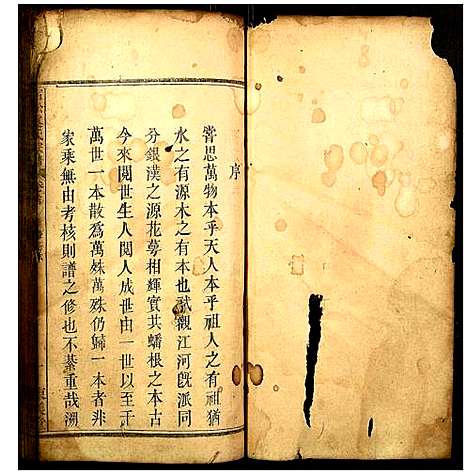 序
嘗思萬物本乎天人本乎祖人之有祖猶
水之有源木之有本也試觀江河旣派同
分銀漢之源花萼相輝實共蟠根之本古
今來閱世生人閱人成世由一世以至千
萬世一本散爲萬殊萬殊仍歸一本者非
家乘無由考核則譜之修也不綦重哉溯